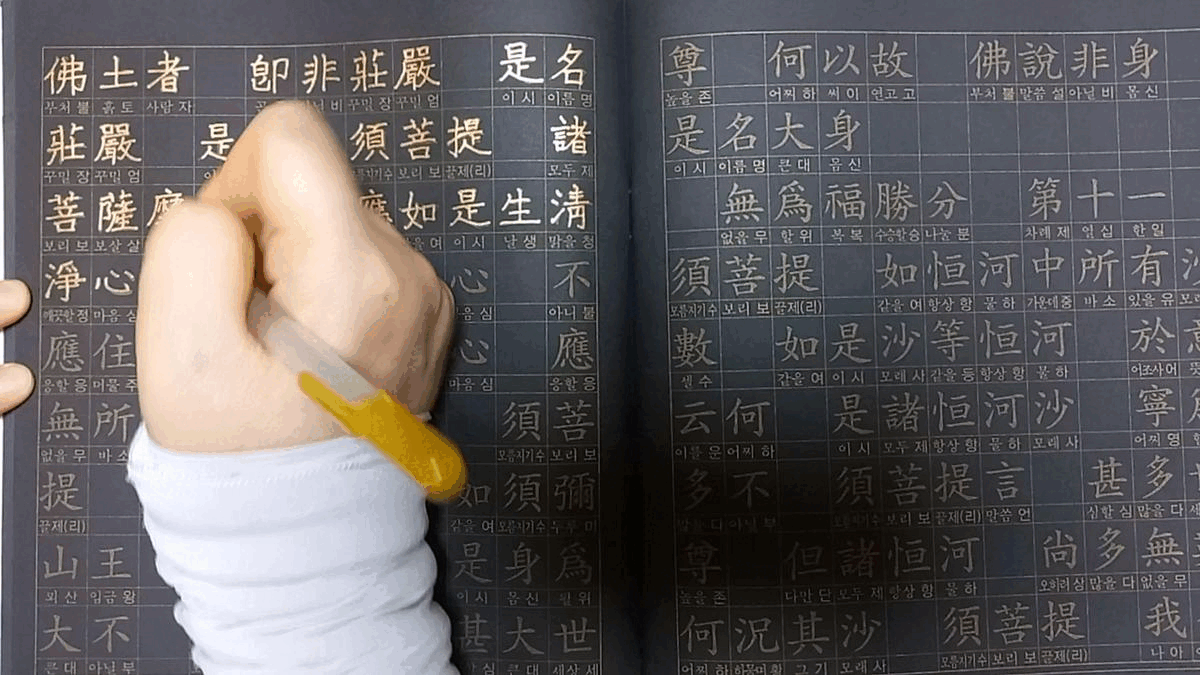 佛土者 卽非莊嚴 是名
부처 불 흙 토 사람 자 비 꾸밀 장 꾸밀 엄 이 시 이름 명
莊嚴 是 須菩提 諸
꾸밀 장 꾸밀 엄 보리 보 끌제(리) 모두 제
菩薩摩 應如是生淸
보리 보 보살 살 여 이 시 날 생 맑을 청
淨心 心 不
깨끗할 정 마음 심 마음 심 아니 불
應住 心 應
응할 응 머물 주 마음 심 응할 응
無所 須菩
없을 무 바 소 모름지기수 보리 보
提 如須彌
끌제(리) 같을 여 모름지기수 두루 미
山王 是身爲
뫼 산 임금 왕 이 시 몸 신 될 위
大不 甚大世
큰 대 아닐 부 심 큰 대 세상 세
尊 何以故 佛說非身
높을 존 어찌 하 써 이 연고 고 부처 불 말씀 설 아닐 비 몸 신
是名大身
이 시 이름 명 큰 대 몸 신
無爲福勝分 第十一
없을 무 할 위 복 복 수승할승 나눌 분 차례 제 열 십 한 일
須菩提 如恒河中所有
모름지기수 보리 보 끌제(리) 같을 여 항상 항 물 하 가운데중 바 소 있을 유
數 如是沙等恒河 於
셀 수 같을 여 이 시 모래 사 같을 등 항상 항 물 하 어조사어
云何 是諸恒河沙 寧
이를 운 어찌 하 이 시 모두 제 항상 항 물 하 모래 사 어찌 영
多不 須菩提言 甚多
많을 다 아닐 부 모름지기수 보리 보 끌제(리) 말씀 언 심할 심 많을 다
尊 但諸恒河 尚多無
높을 존 다만 단 모두 제 항상 항 물 하 오히려 상 많을 다 없을 무
何況其沙 須菩提 我
어찌 하 하물며 황 그 기 모래 사 모름지기수 보리 보 끌제(리) 나 아